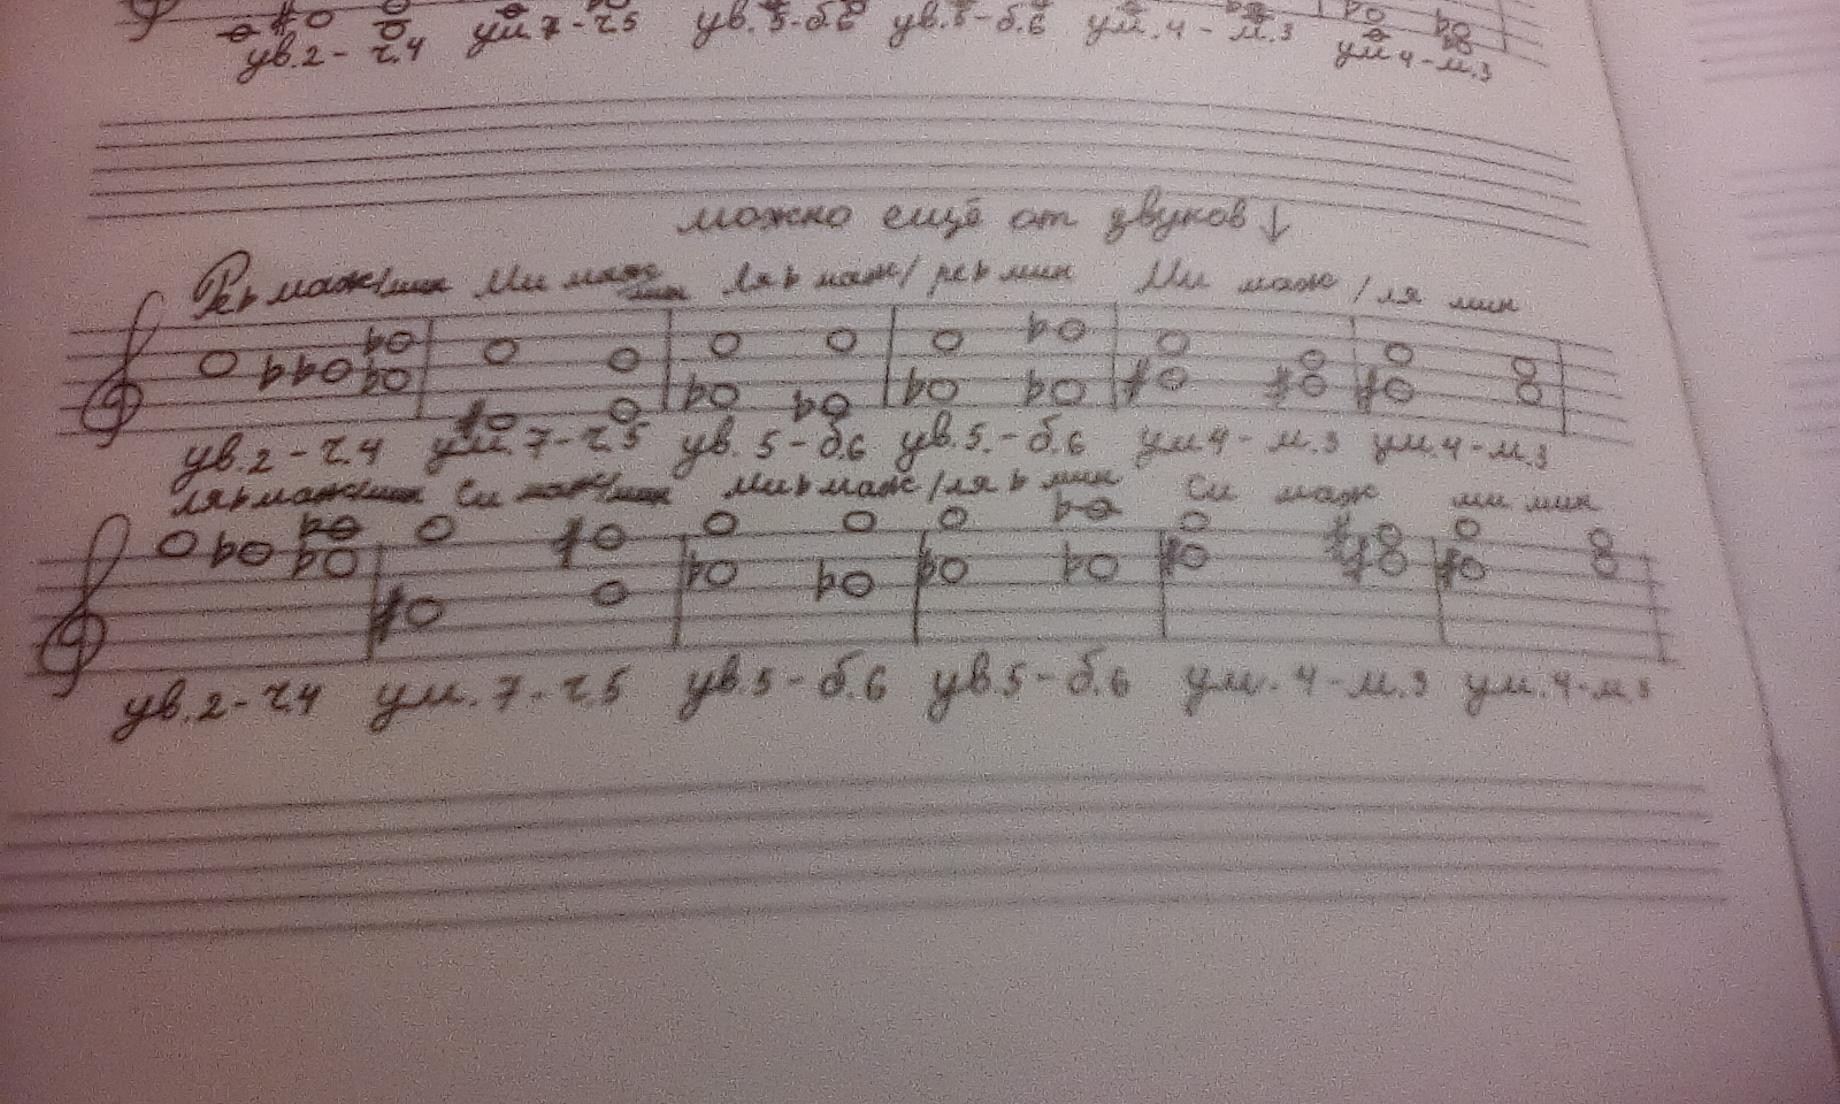 ув.2 - ч.4 ум.7 - ч.5 ув.5 - б.6 ув.5 - б.6 ум.4 - м.3 ум 4 - м.3
можно ещё от звуков ↓
Ре♭ маж/мин Ми маж мин Ля♭ маж/ ре♭ мин Ми маж / ля мин
ув.2 - ч.4 ум.7 - ч.5 ув. 5 - б.6 ув.5. - б.6 ум 4 - м.3 ум.4 - м.3
ля♭ маж/мин Си маж/мин Ми♭ маж /ля♭ мин Си маж ми мин
ув.2 - ч.4 ум.7 - ч.5 ув.5 - б.6 ув.5 - б.6 ум.4 - м.3 ум.4 - м.3